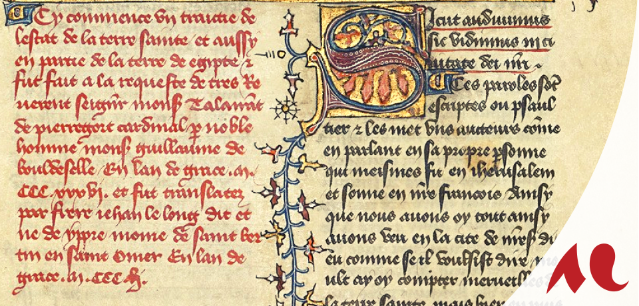 Cy commence vn traictie de
lestat de la terre sainte et aussy
en partie de la terre de egypte z
fut fait a la requeste de tres Re
uerent seigneur mons Talairant
de pierregort cardinal p noble
homme mons guillaume de
bouldeselle En lan de grace .m.
CCC. xxxvj. et fut translatez
par frere iehan le long dit et
ne de yppre moine de saint ber
tin en saint Omer En lan de
grace .m. CCC
Sicut audiuimus
sic vidimus in ci
uitate dei nri
Ces paroles sont
escriptes ou psaul
tier z les met vns aucteurs come
en parlant en sa propre psonne
qui meismes fu en iherusalem
et sonne en nre francois Ainsy
que nous auons oy tout ainsy
auons veu en la cite de nre di
eu comme se il voulsist dire
ult ay oy compter merueill
la terre sainte mais